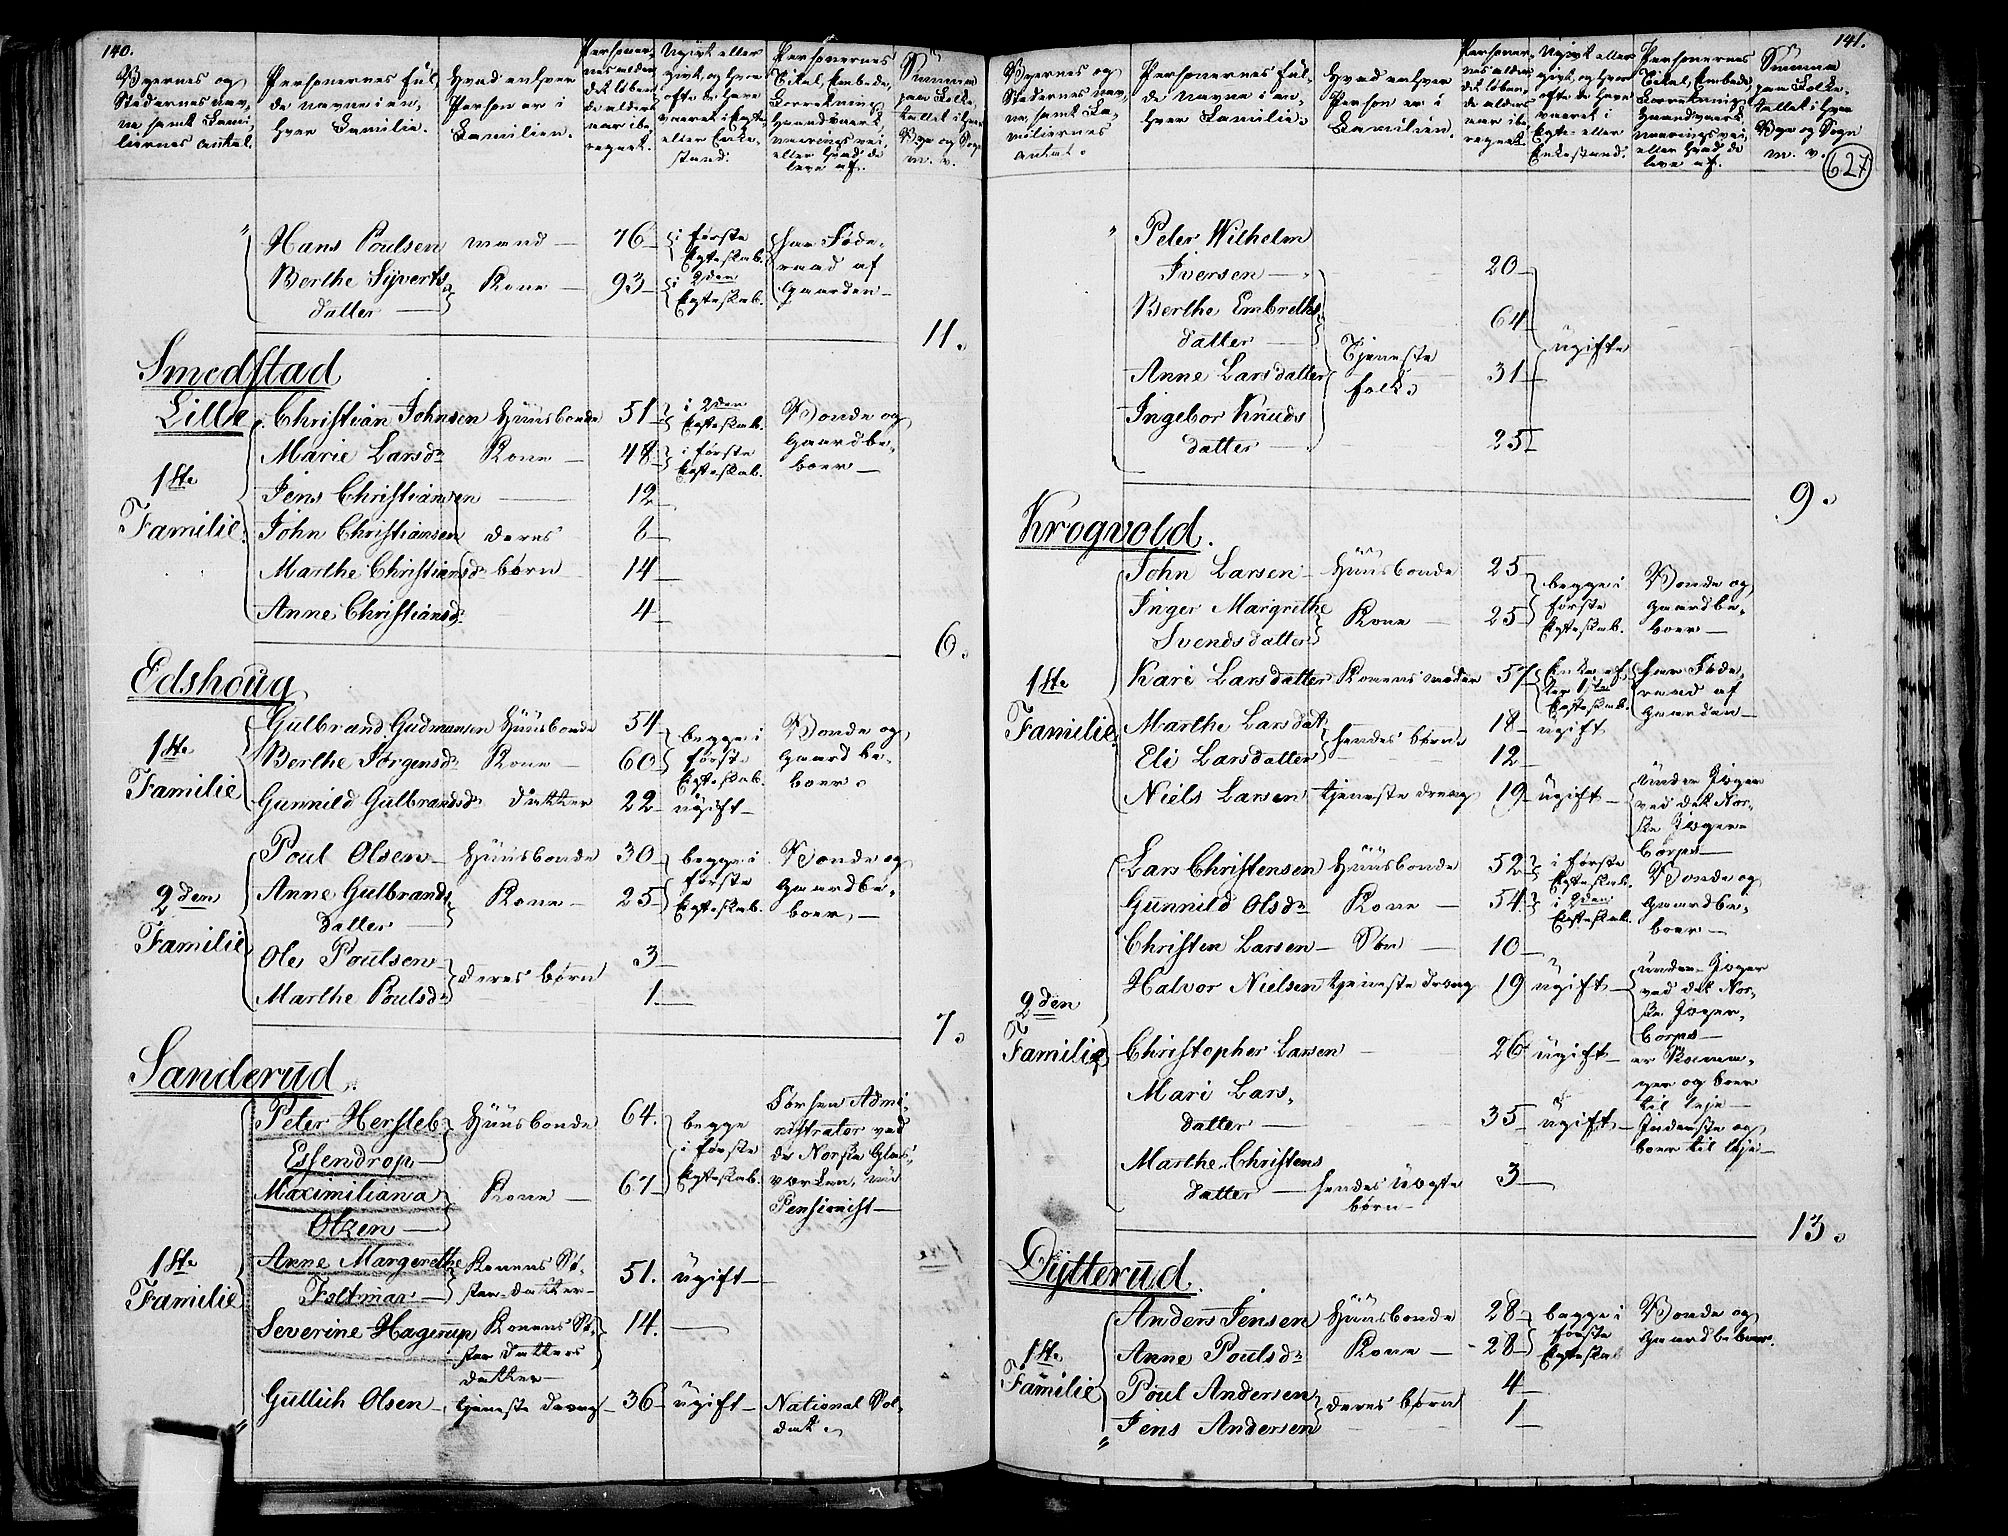 140.
Byernes og
Stedernes nav,
ne samt Fami,
liernes antal.
Personernes ful,
de navne i en,
hver Familie.
Hvad enhver
Person er i
Familien.
Personer,
nes alder
det løben,
de alders
aar ibe,
regnet.
Ugivt eller
givt, og hvor
ofte de have
været i Egte-
eller Enke-
stand.
Personernes
Titel, Embede,
Forretning,
Haandværk,
næringsvei,
eller hvad de
leve af.
Summa
paa Folke,
tallet i hver
Bye og Sogn
m. v.
Hans Poulsen mand 76 i første Egteskab. har Føde-
raad af
Gaarden
Berthe Syverts
datter Kone 93 i 2den Egteskab.
11.
Smedstad
Lille
1ste
Familie
Christian Johnsen Huusbonde 51 i 2den Egteskab. Bonde og
Gaardbe-
boer
Marie Larsdr Kone 48 i første Egteskab.
Jens Christiansen 12
John Christiansen deres 8
Marthe Christiansdr børn 14
Anne Christiansdr 4
6.
Edshoug
1ste
Familie
Gulbrand Gudmunsen Huusbonde 54 begge i
første
Egteskab. Bonde og
Gaardbe-
boer.
Berthe Jørgensdr Kone 60
Gunnild Gulbrandsdr datter 22 ugift
2den
Familie
Poul Olsen Huusbonde 30 begge i
første
Egteskab. Bonde og
Gaardbe-
boer,
Anne Gulbrands
datter Kone 25
Ole Poulsen deres børn 3
Marthe Poulsdr 1
7.
Sanderud.
1ste
Familie
Peter Hersleb
Essendrop Huusbonde 64. begge
i første
Egteskab. Førhen Admi-
nistrator ved
de Norske Glas-
værker, nu
Pensionist
Maximiliana
Olzen Kone 67
Anne Margerethe
Foltmar Konens Sø-
ster-datter 51. ugift
Severine Hagerup Konens Sø-
ster datters
datter 14.
Gullich Olsen tjeneste dreng 36 ugift National Sol-
dat.
141.
627
Byernes og
Stedernes nav,
ne, samt Fa-
miliernes
antal.
Personernes ful-
de navne i en-
hver Familie.
Hvad enhver
Person er i
Familien.
Personer,
nes alder
det løben,
de alders
aar ibe-
regnet
Ugivt eller
givt, og hvor
ofte de have
været i
Egte- eller
Enkestand.
Personernes
Titel, Embede,
Forretning,
Haandværk,
næringsvei,
eller hvad de
leve af.
Summa
paa Folke-
tallet i hver
Bye og Sogn
m. v.
Peter Wilhelm
Iversen 20
Berthe Embreths
datter 64
Tjeneste
folk.
ugifte
Anne Larsdatter 31
Ingebor Knuds
datter 25
9.
Krogvold.
1ste
Familie
John Larsen Huusbonde 25 begge i
første
Egteskab. Bonde og
Gaardbe-
boer
Inger Margrethe
Svendsdatter Kone 25
Kari Larsdatter Konens moder 57 Enke af
den 1ste
Egteskab. har Føde-
raad af
Gaarden
Marthe Larsdatr hendes børn 18 ugift
Eli Larsdatter 12
Niels Larsen tjeneste dreng 19 ugift under Jæger
ved det Nor-
ske Jæger-
Corps
2den
Familie
Lars Christensen Huusbonde 52 i første
Egteskab. Bonde og
Gaardbe-
boer
Gunnild Olsdr Kone 54 i 2den
Egteskab.
Christen Larsen Søn 10
Halvor Nielsen tjeneste dreng 19 ugift under Jæger
ved det Nor-
ske Jæger-
Corps
Christopher Larsen 26 ugift
er
og boer
til leje
Mari Lars,
datter 35 ugift Inderste og
boer til leje
Marthe Christens
datter hendes uægte
børn 3
13.
Dytterud.
1ste
Familie
Anders Jensen Huusbonde 28 begge i
første
Egteskab Bonde og
Gaardbeboer.
Anne Poulsdr Kone 28
Poul Andersen deres børn 4
Jens Andersen 1